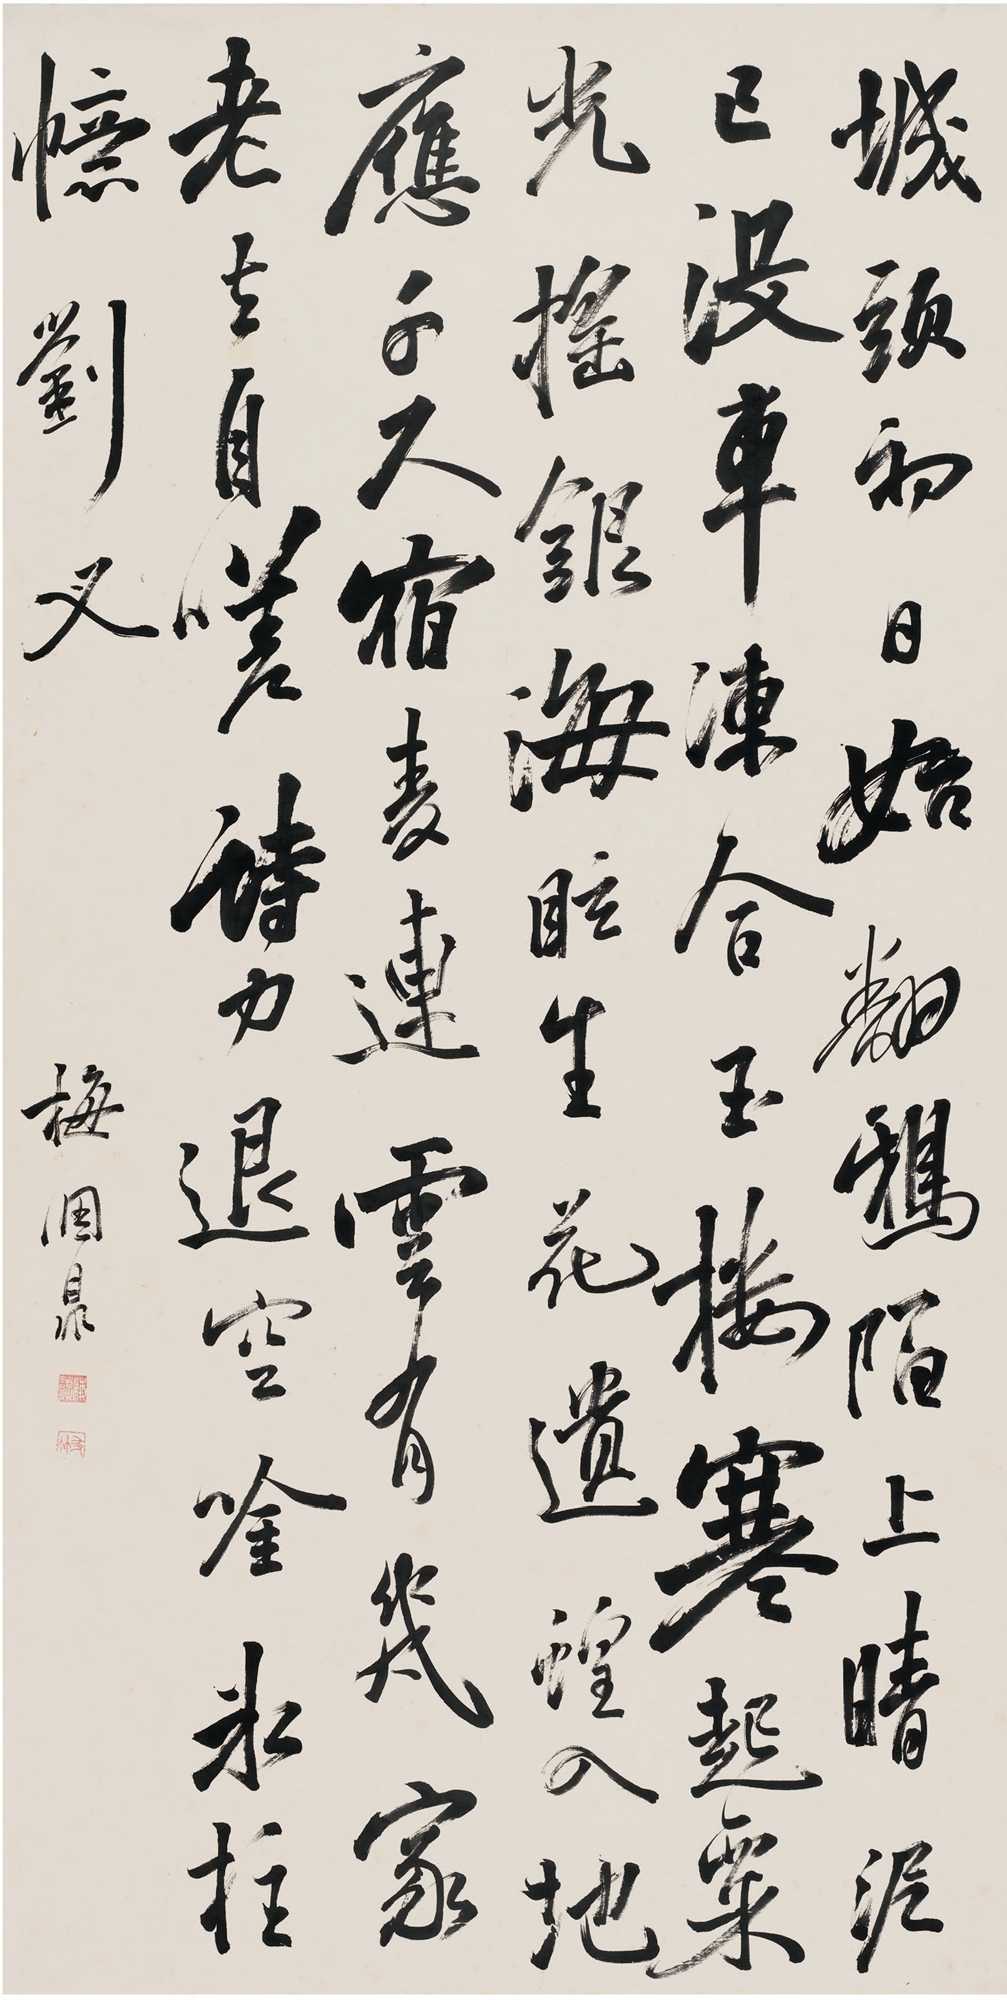 城頭初日始翻鴉陌上晴泥
已沒車凍合玉樓寒起粟
光搖銀海眩生花遺蝗入地
應千尺宿麥連雲有幾家
老去自嗟詩力退空吟冰柱
憶劉叉
梅調鼎